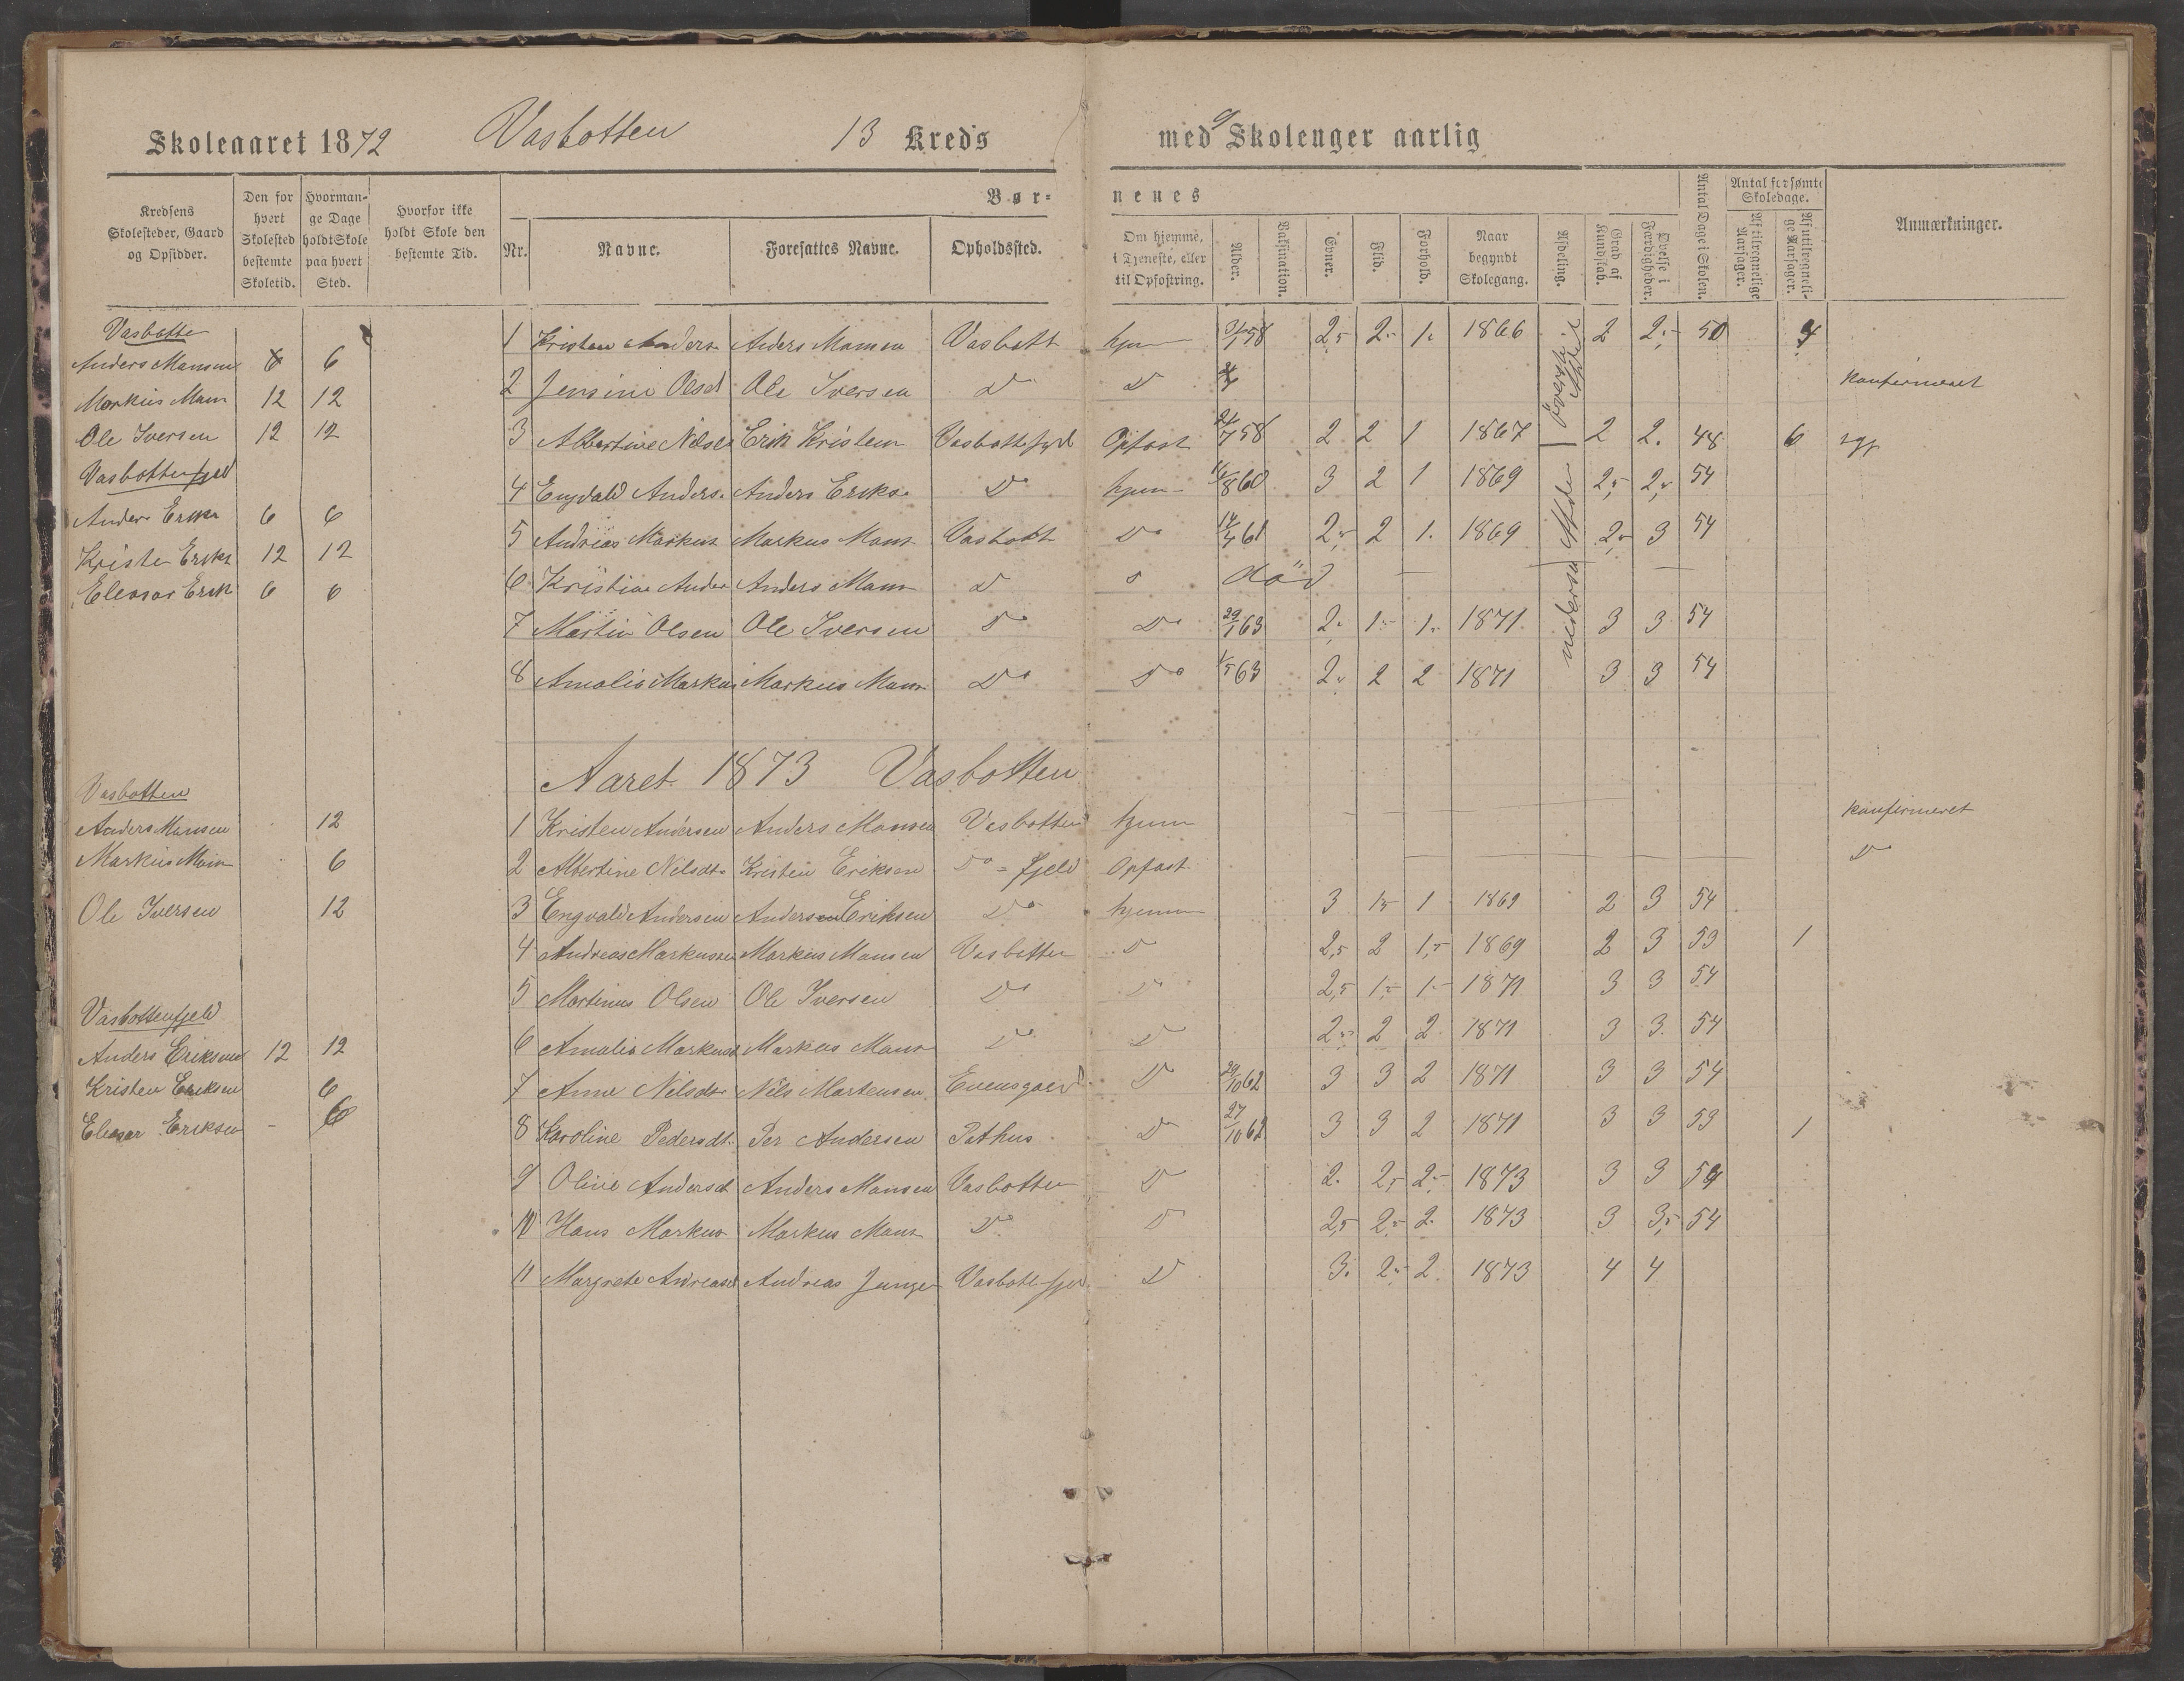 Skoleaaret 1872 Vasbotten 13 Kreds med 9 Skolenger aarlig
Kredsens Skolesteder, Gaard og Opsidder.
Den for hvert Skolested bestemte Skoletid.
Hvormange Dage holdt Skole paa hvert Sted.
Hvorfor ikke holdt Skole den bestemte Tid.
Bør- nenes
Nr.
Navne.
Foresattes Navne.
Opholdssted.
Om hjemme, i Tjeneste, eller til Opfostring.
Alder.
Vaksination.
Evner.
Flid.
Forhold.
Naar begyndt Skolegang.
Afdeling.
Grad af Kundskab.
Øvelse i Færdigheder.
Antal Dage i Skolen.
Antal forsømte Skoledage.
Af tilregnelige Aarsager.
Af utilregnelige Aarsager.
Anmærkninger.
Vasbotte
Anders Mansen 6 6
Markus Mans 12 12
Ole Iversen 12 12
Vasbottenfjeld
Anders Eriks 6 6
Kristen Eriks 12 12
Eleasar Erik 6 6
1 Kristen Anders Anders Mansen Vasbott hjem 58 2,5 2- 1. 1866 2 2,- 50 4
2 Jensine Olsd Ole Iversen Do Do konfirmeret
3 Albertine Nilsd Erik Kristen Vasbottefjel Opfost 58 2 2 1 1867 2 2. 48 6
4 Engvald Anders. Anders Eriks. Do hjem 60 3 2 1 1869 2,5 2,- 54
5 Andreas Markus Markus Mans Vasbott Do 61 2,- 2 1. 1869 2,- 3 54
6 Kristine Ander Anders Mans Do Do död
7 Martin Olsen Ole Iversen Do Do 29/1 63 2- 1- 1- 1871 3 3 54
8 Amalie Markus Markus Mans Do Do 1/5 63 2- 2 2 1871 3 3 54
Øverste Afdel
nederste Afdel
Aaret 1873 Vasbotten
Vasbotten
Anders Mansen 12
Markus Man 6
Ole Iversen 12
Vasbottenfjeld
Anders Eriksen 12 12
Kristen Eriksen 6
Eleasar Eriksen - 6
1 Kristen Andersen Anders Mansen Vasbotten hjem konfirmeret
2 Albertine Nilsdt. Kristen Eriksen Do = fjeld Opfost. Do
3 Engvald Andersen Anders Eriksen Do hjemme 3 1,5 1 1869 2 3 54
4 Andreas Markussen Markus Mansen Vasbotten Do 2,5 2 1,- 1869 2 3 53 1
5 Martinus Olsen Ole Iversen Do Do 2,5 1- 1- 1871 3 3 54
6 Amalie Markusd Markus Mans Do Do 2- 2 2 1871 3 3. 54
7 Anne Nilsdt. Nils Mortensen Evensgaard Do 29/10 62 3 3 2 1871 3 3 54
8 Karoline Pedersdt. Per Andersen Pethus Do 27/10 62 3 3 2 1871 3 3 53 1
9 Oline Andersd Anders Mansen Vasbotten Do 2. 2,- 2- 1873 3 3 54
10 Hans Markus Markus Mans Do Do 2,5 2- 2. 1873 3 3,5 54
11 Margrete Andreasd Andreas Junge Vasbottefjel Do 3. 2- 2. 1873 4 4